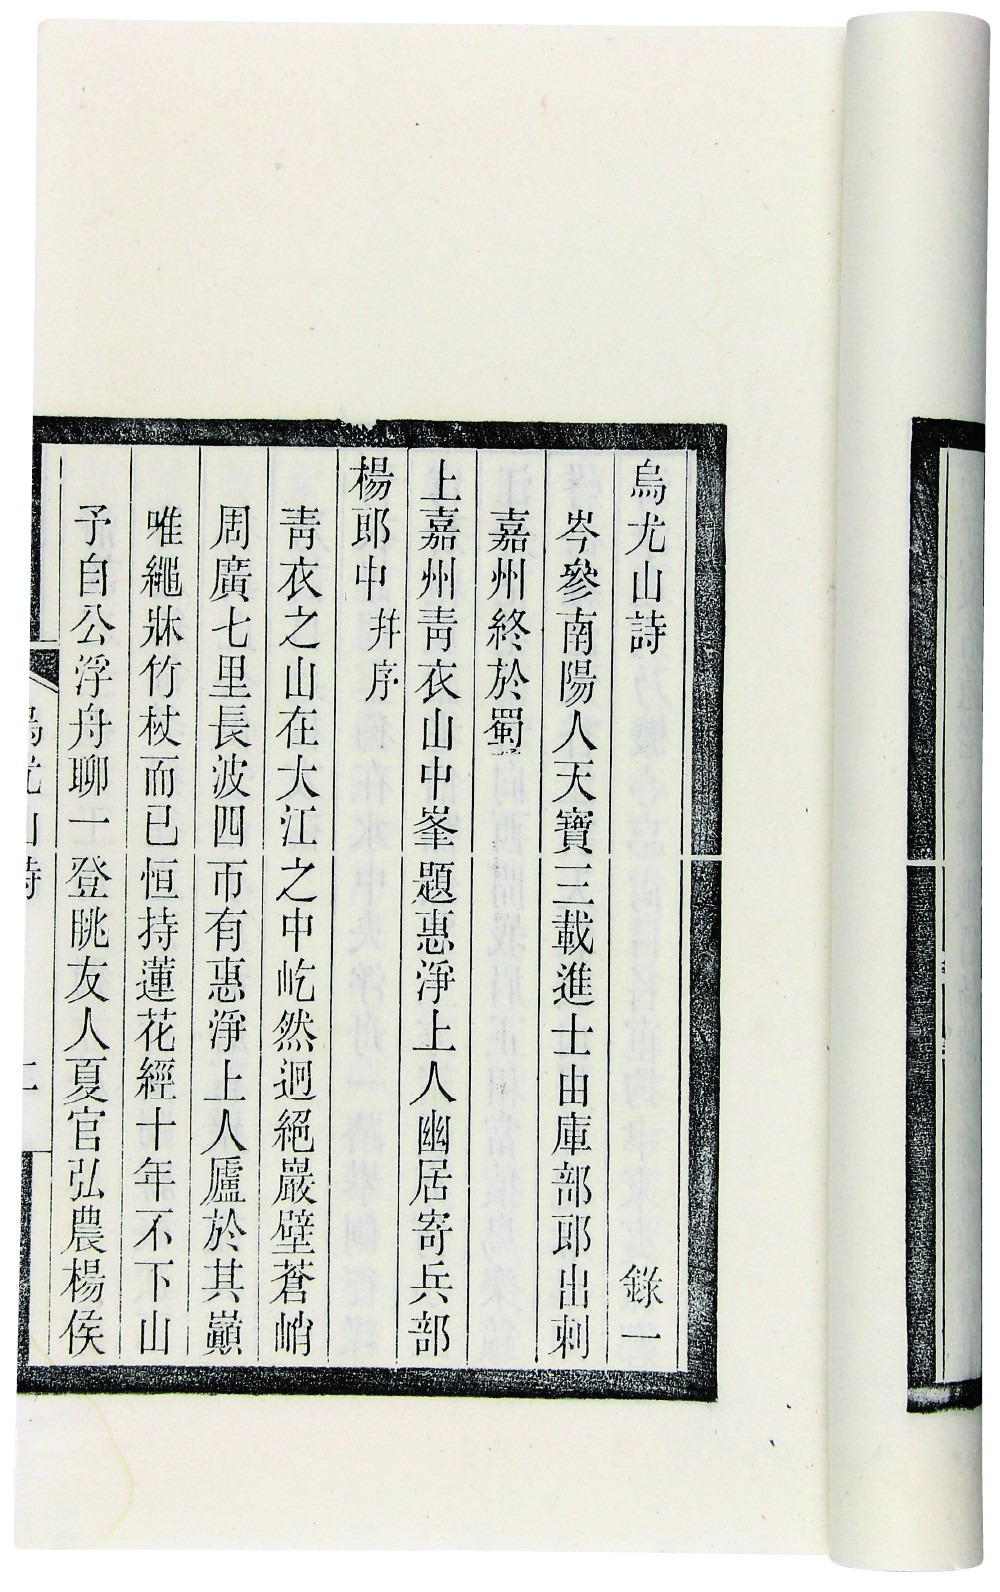 烏尤山詩　錄一
岑參南陽人天寶三載進士由庫部郎出刺
嘉州終於蜀
上嘉州靑衣山中峯題惠淨上人幽居寄兵部
楊郎中 幷序
靑衣之山在大江之中屹然迥絕巖壁蒼峭
周廣七里長波四帀有惠淨上人廬於其巔
唯繩牀竹杖而已恒持蓮花經十年不下山
予自公浮舟聊一登眺友人夏官弘農楊侯
烏尤山詩